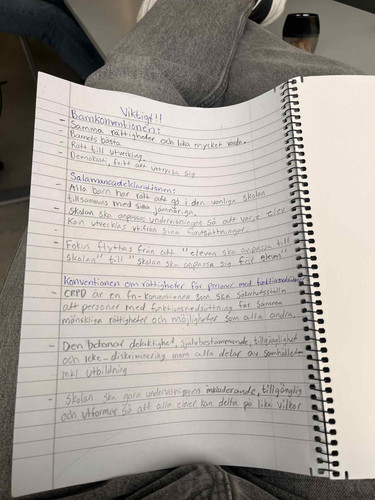 Viktigt!!
Barnkonventionen:
- Samma rättigheter och lika mycket värde.
- Barnets bästa
- Rätt till utveckling.
- Demokrati fritt att uttrycka sig
Salamancadeklarationen:
- Alla barn har rätt att gå i den vanliga skolan
tillsammans med sina jämnåriga.
- Skolan ska anpassa undervisningen så att varje elev
kan utvecklas utifrån sina förutsättningar.
- Fokus flyttas från att "eleven ska anpassa till
skolan" till "skolan ska anpassa sig för eleven"
Konventionen om rättigheter för personer med funktionsnedsättning
- CRPD är en fn-konventionen som ska säkerhetsställa
att personer med funktionsnedsättning får samma
mänskliga rättigheter och möjligheter som alla andra.
- Den betonar delaktighet, självbestämmande, tillgänglighet
och icke-diskriminering inom alla delar av samhället
inkl utbildning
- Skolan ska göra undervisningen inkluderande, tillgänglig
och utformas så att alla elever kan delta på lika villkor